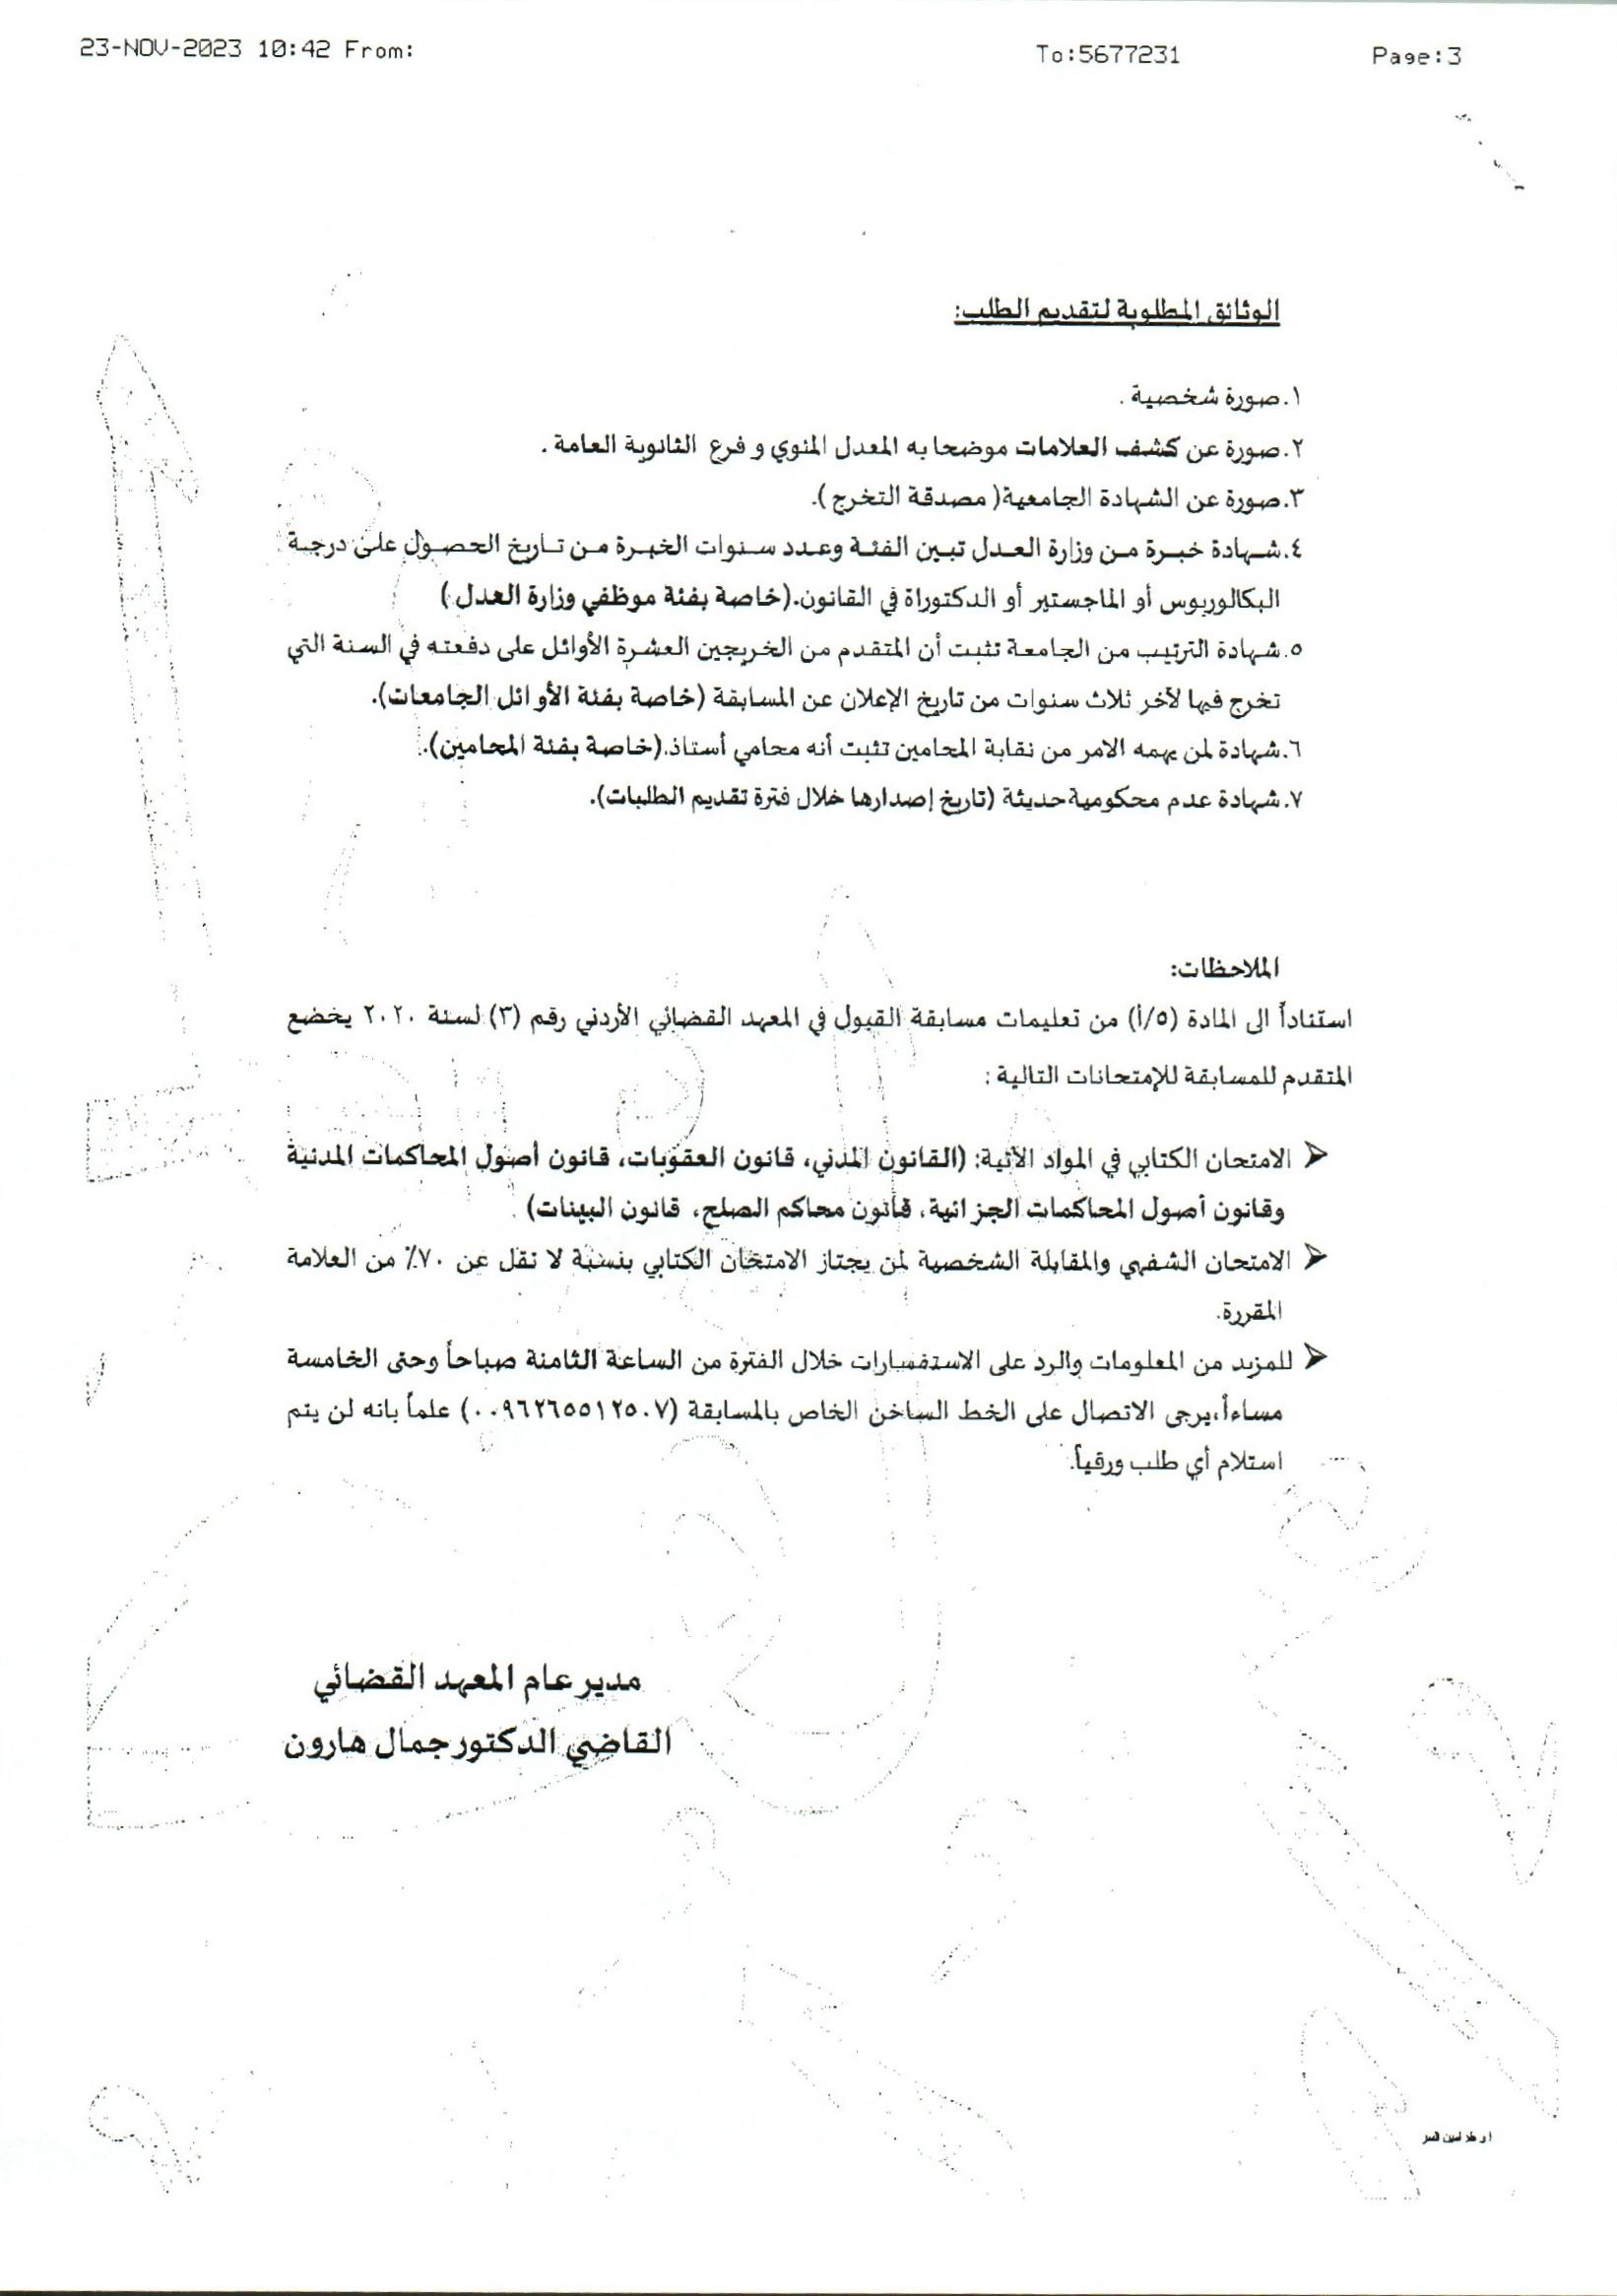 23-NOV-2023 10:42 From: To:5677231 Page:3
الوثائق المطلوبة لتقديم الطلب:
١.صورة شخصية .
٢.صورة عن كشف العلامات موضحا به المعدل المئوي و فرع الثانوية العامة .
٣.صورة عن الشهادة الجامعية( مصدقة التخرج ).
٤.شهادة خبرة من وزارة العدل تبين الفئة وعدد سنوات الخبرة من تاريخ الحصول على درجة
البكالوريوس أو الماجستير أو الدكتوراة في القانون.(خاصة بفئة موظفي وزارة العدل )
٥.شهادة الترتيب من الجامعة تثبت أن المتقدم من الخريجين العشرة الأوائل على دفعته في السنة التي
تخرج فيها لآخر ثلاث سنوات من تاريخ الإعلان عن المسابقة (خاصة بفئة الأوائل الجامعات).
٦.شهادة لمن يهمه الامر من نقابة المحامين تثبت أنه محامي أستاذ.(خاصة بفئة المحامين).
٧.شهادة عدم محكومية حديثة (تاريخ إصدارها خلال فترة تقديم الطلبات).
الملاحظات:
استناداً الى المادة (٥/أ) من تعليمات مسابقة القبول في المعهد القضائي الأردني رقم (٣) لسنة ٢٠٢٠ يخضع
المتقدم للمسابقة للإمتحانات التالية :
➢ الامتحان الكتابي في المواد الآتية: (القانون المدني، قانون العقوبات، قانون أصول المحاكمات المدنية
وقانون أصول المحاكمات الجزائية، قانون محاكم الصلح، قانون البينات) .
➢ الامتحان الشفهي والمقابلة الشخصية لمن يجتاز الامتحان الكتابي بنسبة لا تقل عن ٧٠٪ من العلامة
المقررة.
➢ للمزيد من المعلومات والرد على الاستفسارات خلال الفترة من الساعة الثامنة صباحاً وحتى الخامسة
مساءاً،يرجى الاتصال على الخط الساخن الخاص بالمسابقة (٠٠٩٦٢٦٥٥١٢٥٠٧) علماً بانه لن يتم
استلام أي طلب ورقياً.
مدير عام المعهد القضائي
القاضي الدكتور جمال هارون